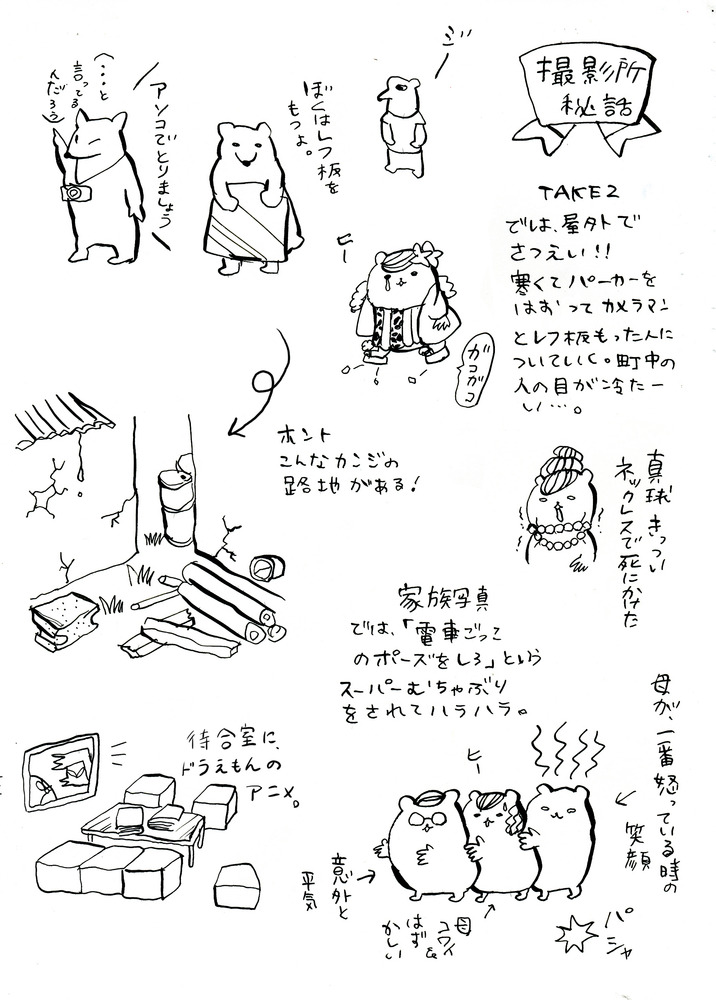 撮影所
秘話
ジー
ぼくはレフ板を
もつよ。
アソコでとりましょう
(…と
言ってる
んだろう)
TAKE2
では、屋外で
さつえい!!
寒くてパーカーを
はおってカメラマン
とレフ板もった人に
ついていく。町中の
人の目が冷たー
い…。
ヒー
ガコガコ
ホント
こんなカンジの
路地がある!
真球きっつい
ネックレスで死にかけた
家族写真
では、「電車ごって
のポーズをしろ」という
スーパーむちゃぶり
をされてハラハラ。
待合室に、
ドラえもんの
アニメ。
母が、一番怒っている時の
笑顔
ヒー
意外と
平気
母
コワイ
&
はず
かしい
パシャ